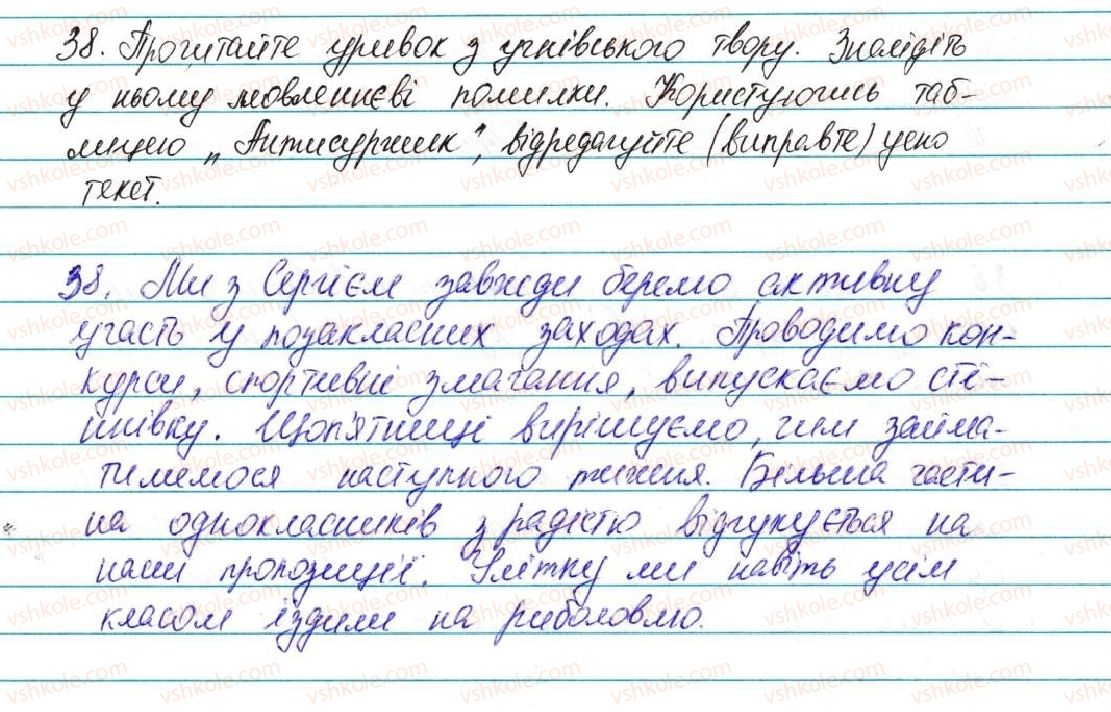 38. Прочитайте уривок з учнівського твору. Знайдіть
у ньому мовленнєві помилки. Користуючись таб-
лицею „Антисуржик", відредагуйте (виправте) усно
текст.
38. Ми з Сергієм завжди беремо активну
участь у позакласних заходах. Проводимо кон-
курси, спортивні змагання, випускаємо сті-
ннівку. Щоп'ятниці вирішуємо, чим займа-
тимемося наступного тижня. Більша части-
на однокласників з радістю відгукується на
наши пропозиції. Улітку ми навіть усім
класом їздили на риболовлю.